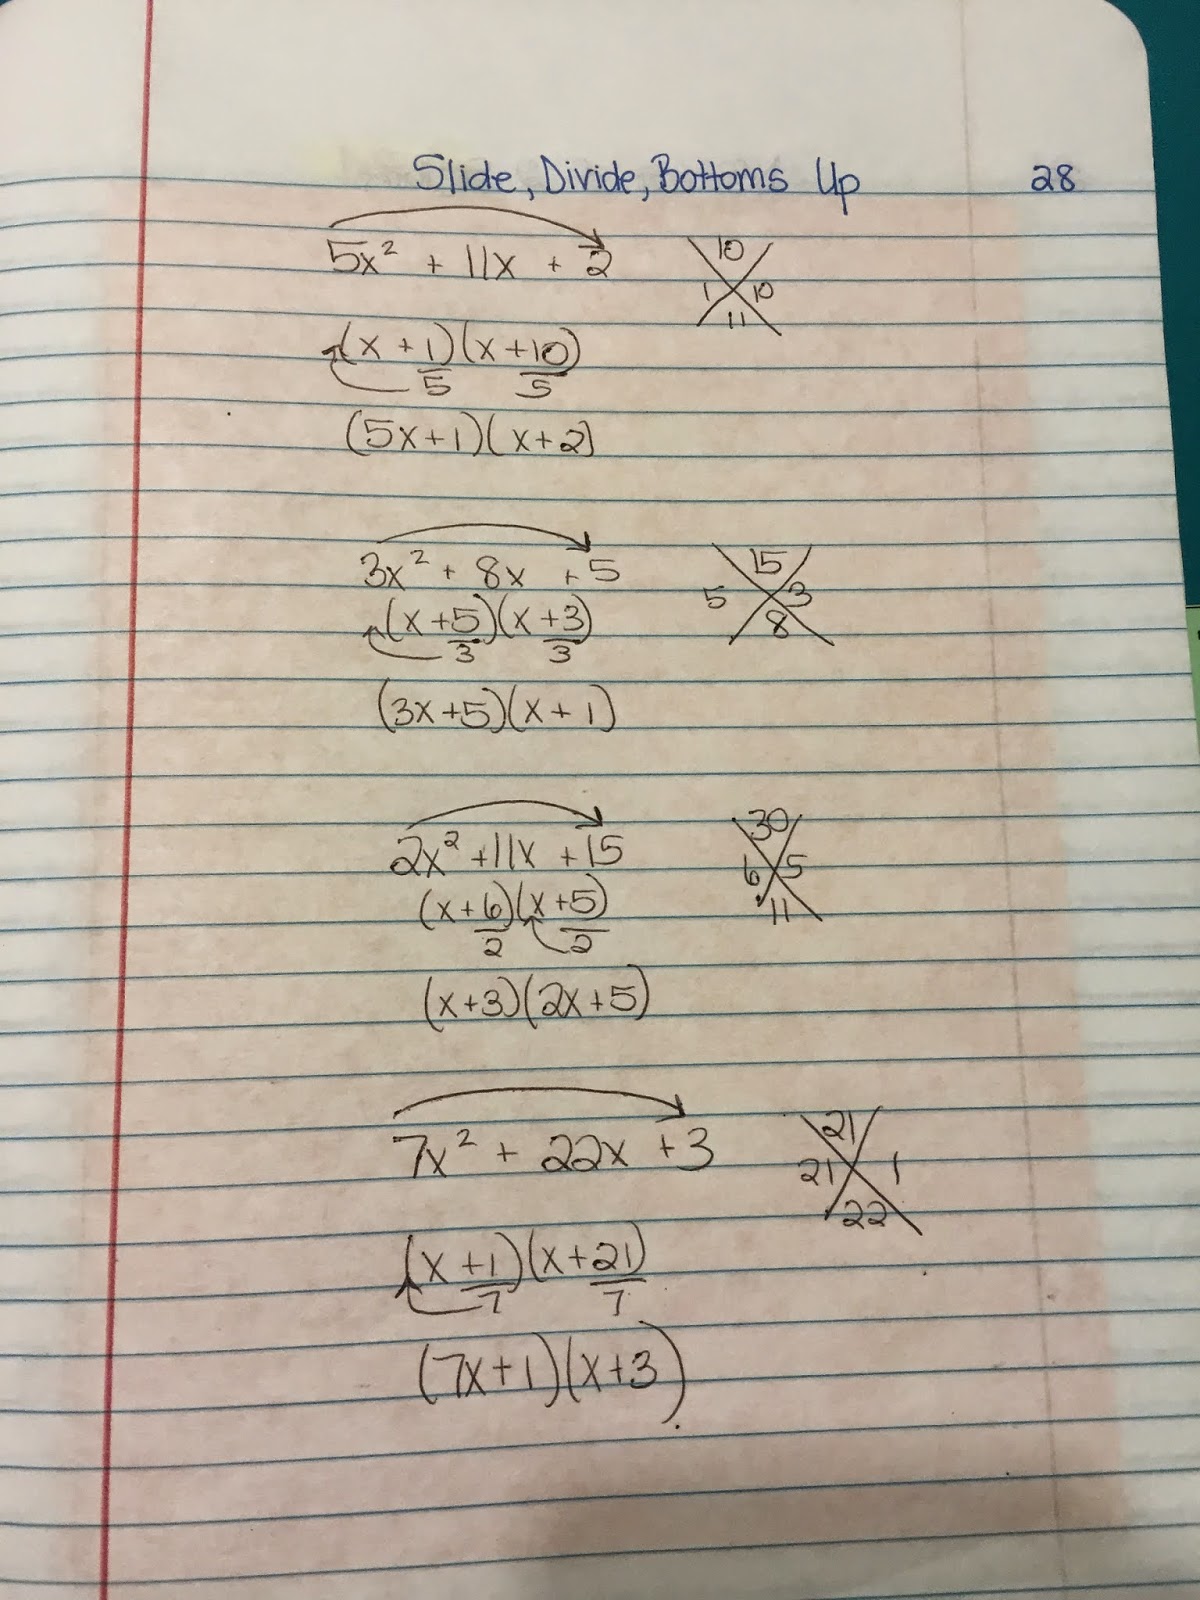 Slide, Divide, Bottoms Up 28
5x² + 11x + 2
10
1 10
11
(x + 1)(x + 10)
5 5
(5x + 1)(x + 2)
3x² + 8x + 5
15
5 3
8
(x + 5)(x + 3)
3 3
(3x + 5)(x + 1)
2x² + 11x + 15
30
6 5
11
(x + 6)(x + 5)
2 2
(x + 3)(2x + 5)
7x² + 22x + 3
21
21 1
22
(x + 1)(x + 21)
7 7
(7x + 1)(x + 3)